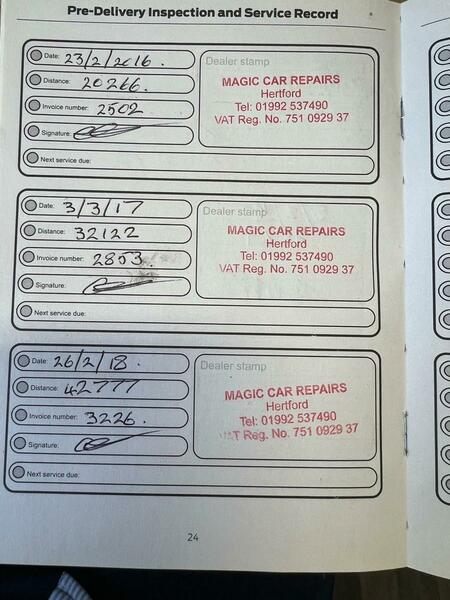 Pre-Delivery Inspection and Service Record
Date: 23/2/2016.
Distance: 20266.
Invoice number: 2502
Signature:
Next service due:
Dealer stamp
MAGIC CAR REPAIRS
Hertford
Tel: 01992 537490
VAT Reg. No. 751 0929 37
Date: 3/3/17
Distance: 32122
Invoice number: 2853.
Signature:
Next service due:
Dealer stamp
MAGIC CAR REPAIRS
Hertford
Tel: 01992 537490
VAT Reg. No. 751 0929 37
Date: 26/2/18.
Distance: 42777
Invoice number: 3226.
Signature:
Next service due:
Dealer stamp
MAGIC CAR REPAIRS
Hertford
Tel: 01992 537490
VAT Reg. No. 751 0929 37
24